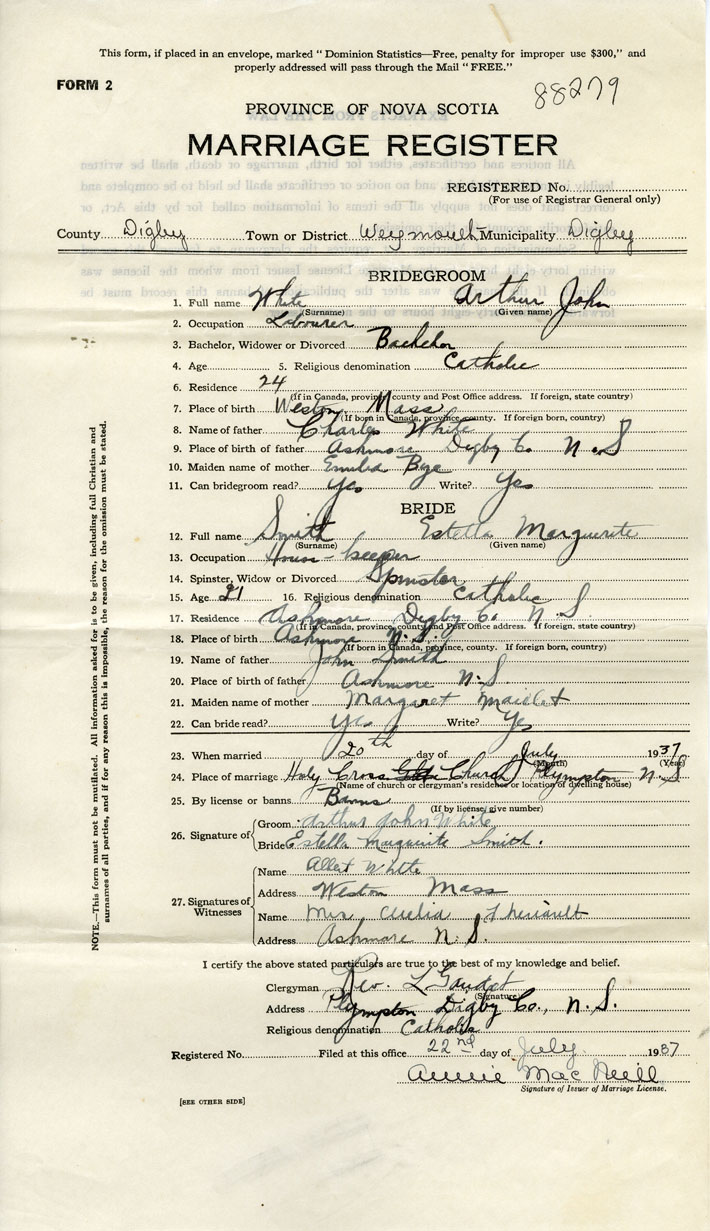 This form, if placed in an envelope, marked "Dominion Statistics—Free, penalty for improper use $300," and
properly addressed will pass through the Mail "FREE."
FORM 2
88279
PROVINCE OF NOVA SCOTIA
MARRIAGE REGISTER
REGISTERED No.
(For use of Registrar General only)
County Digby Town or District Weymouth Municipality Digby
BRIDEGROOM
1. Full name White Arthur John
(Surname) (Given name)
2. Occupation Labourer
3. Bachelor, Widower or Divorced Bachelor
4. Age 5. Religious denomination Catholic
6. Residence 24
(If in Canada, province, county and Post Office address. If foreign, state country)
7. Place of birth Weston Mass
(If born in Canada, province, county. If foreign born, country)
8. Name of father Charles White
9. Place of birth of father Ashmore Digby Co. N.S
10. Maiden name of mother Emilia
11. Can bridegroom read? Yes Write? Yes
BRIDE
12. Full name Smith Estella Marguerite
(Surname) (Given name)
13. Occupation House-keeper
14. Spinster, Widow or Divorced Spinster
15. Age 21 16. Religious denomination Catholic
17. Residence Ashmore Digby Co. N.S.
(If in Canada, province, county and Post Office address. If foreign, state country)
18. Place of birth Ashmore N.S.
(If born in Canada, province, county. If foreign born, country)
19. Name of father John Smith
20. Place of birth of father Ashmore N.S.
21. Maiden name of mother Margaret Maillet
22. Can bride read? Yes Write? Yes
23. When married 20th day of July 1937
(Month) (Year)
24. Place of marriage Holy Cross Church Plympton N.S
(Name of church or clergyman's residence or location of dwelling house)
25. By license or banns Banns
(If by license, give number)
26. Signature of
Groom Arthur John White
Bride Estella Marguerite Smith.
27. Signatures of Witnesses
Name Albert White
Address Weston Mass
Name Mrs. Theriault
Address Ashmore N.S.
I certify the above stated particulars are true to the best of my knowledge and belief.
Clergyman Rev. L Gaudet
(Signature)
Address Plympton Digby Co., N.S.
Religious denomination Catholic
Registered No. Filed at this office 22nd day of July 1937
Annie MacNeill
Signature of Issuer of Marriage License.
[SEE OTHER SIDE]
NOTE.—This form must not be mutilated. All information asked for is to be given, including full Christian and
surnames of all parties, and if for any reason this is impossible, the reason for the omission must be stated.